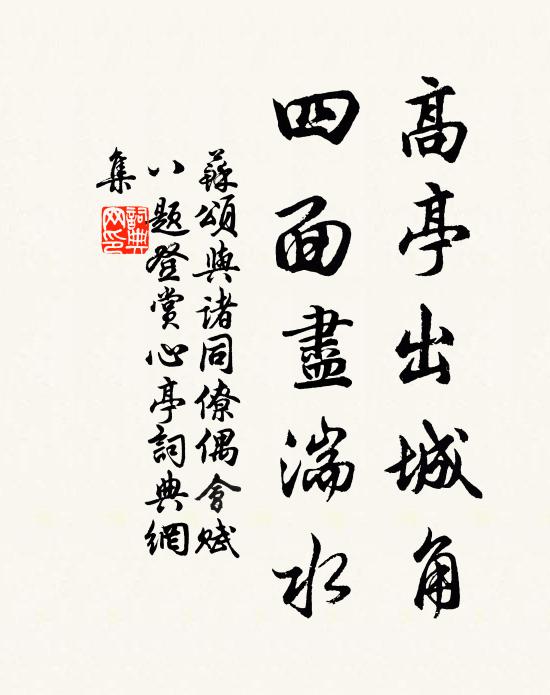 高亭出城角
四面盡湍水
蘇頌與諸同僚偶會賦
八題登賞心亭詞典網
集
詞典
网印